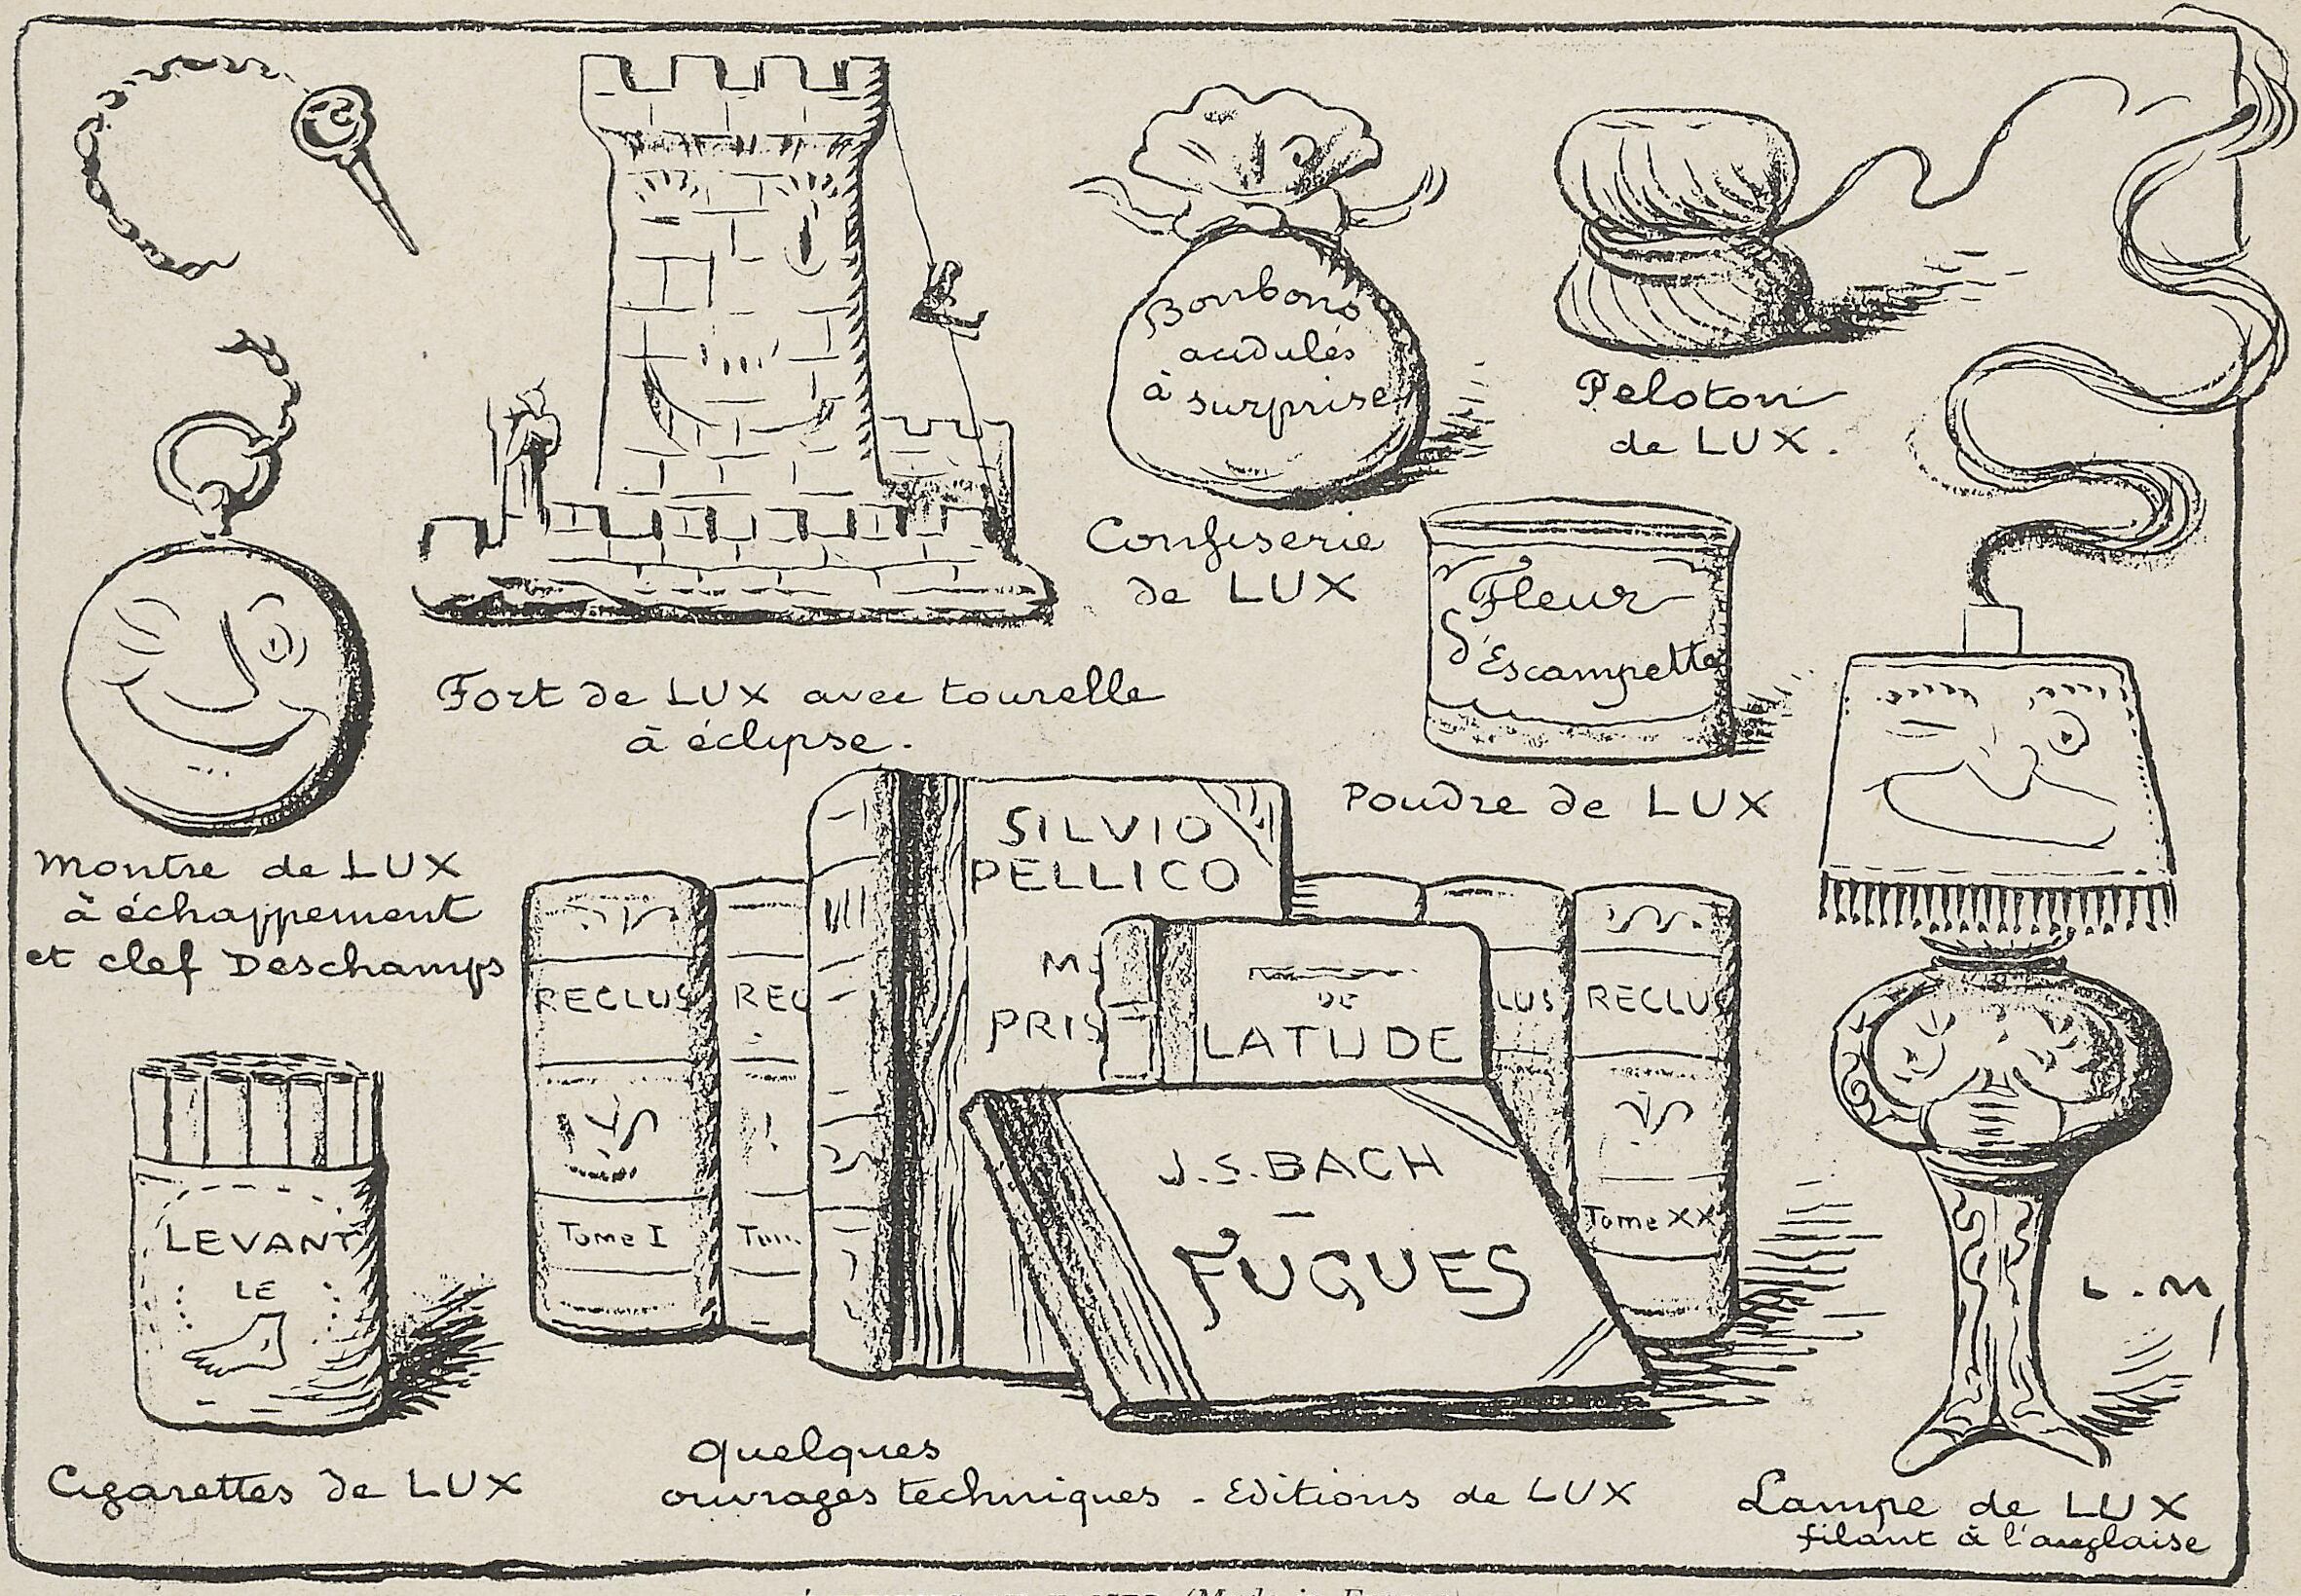 Bonbons
acidulés
à surprise
Confiserie
de LUX
Peloton
de LUX.
Fort de LUX avec tourelle
à éclipse.
Fleur
d'Escampette
Poudre de LUX
Montre de LUX
à échappement
et clef Deschamps
SILVIO
PELLICO
M
PRIS
DE
LATUDE
RECLUS
REC
LUS
RECLUS
Tome I
Tom
Tome XX
J.S. BACH
FUGUES
LEVANT
LE
Cigarettes de LUX
Quelques
ouvrages techniques - Editions de LUX
L.M
Lampe de LUX
filant à l'anglaise